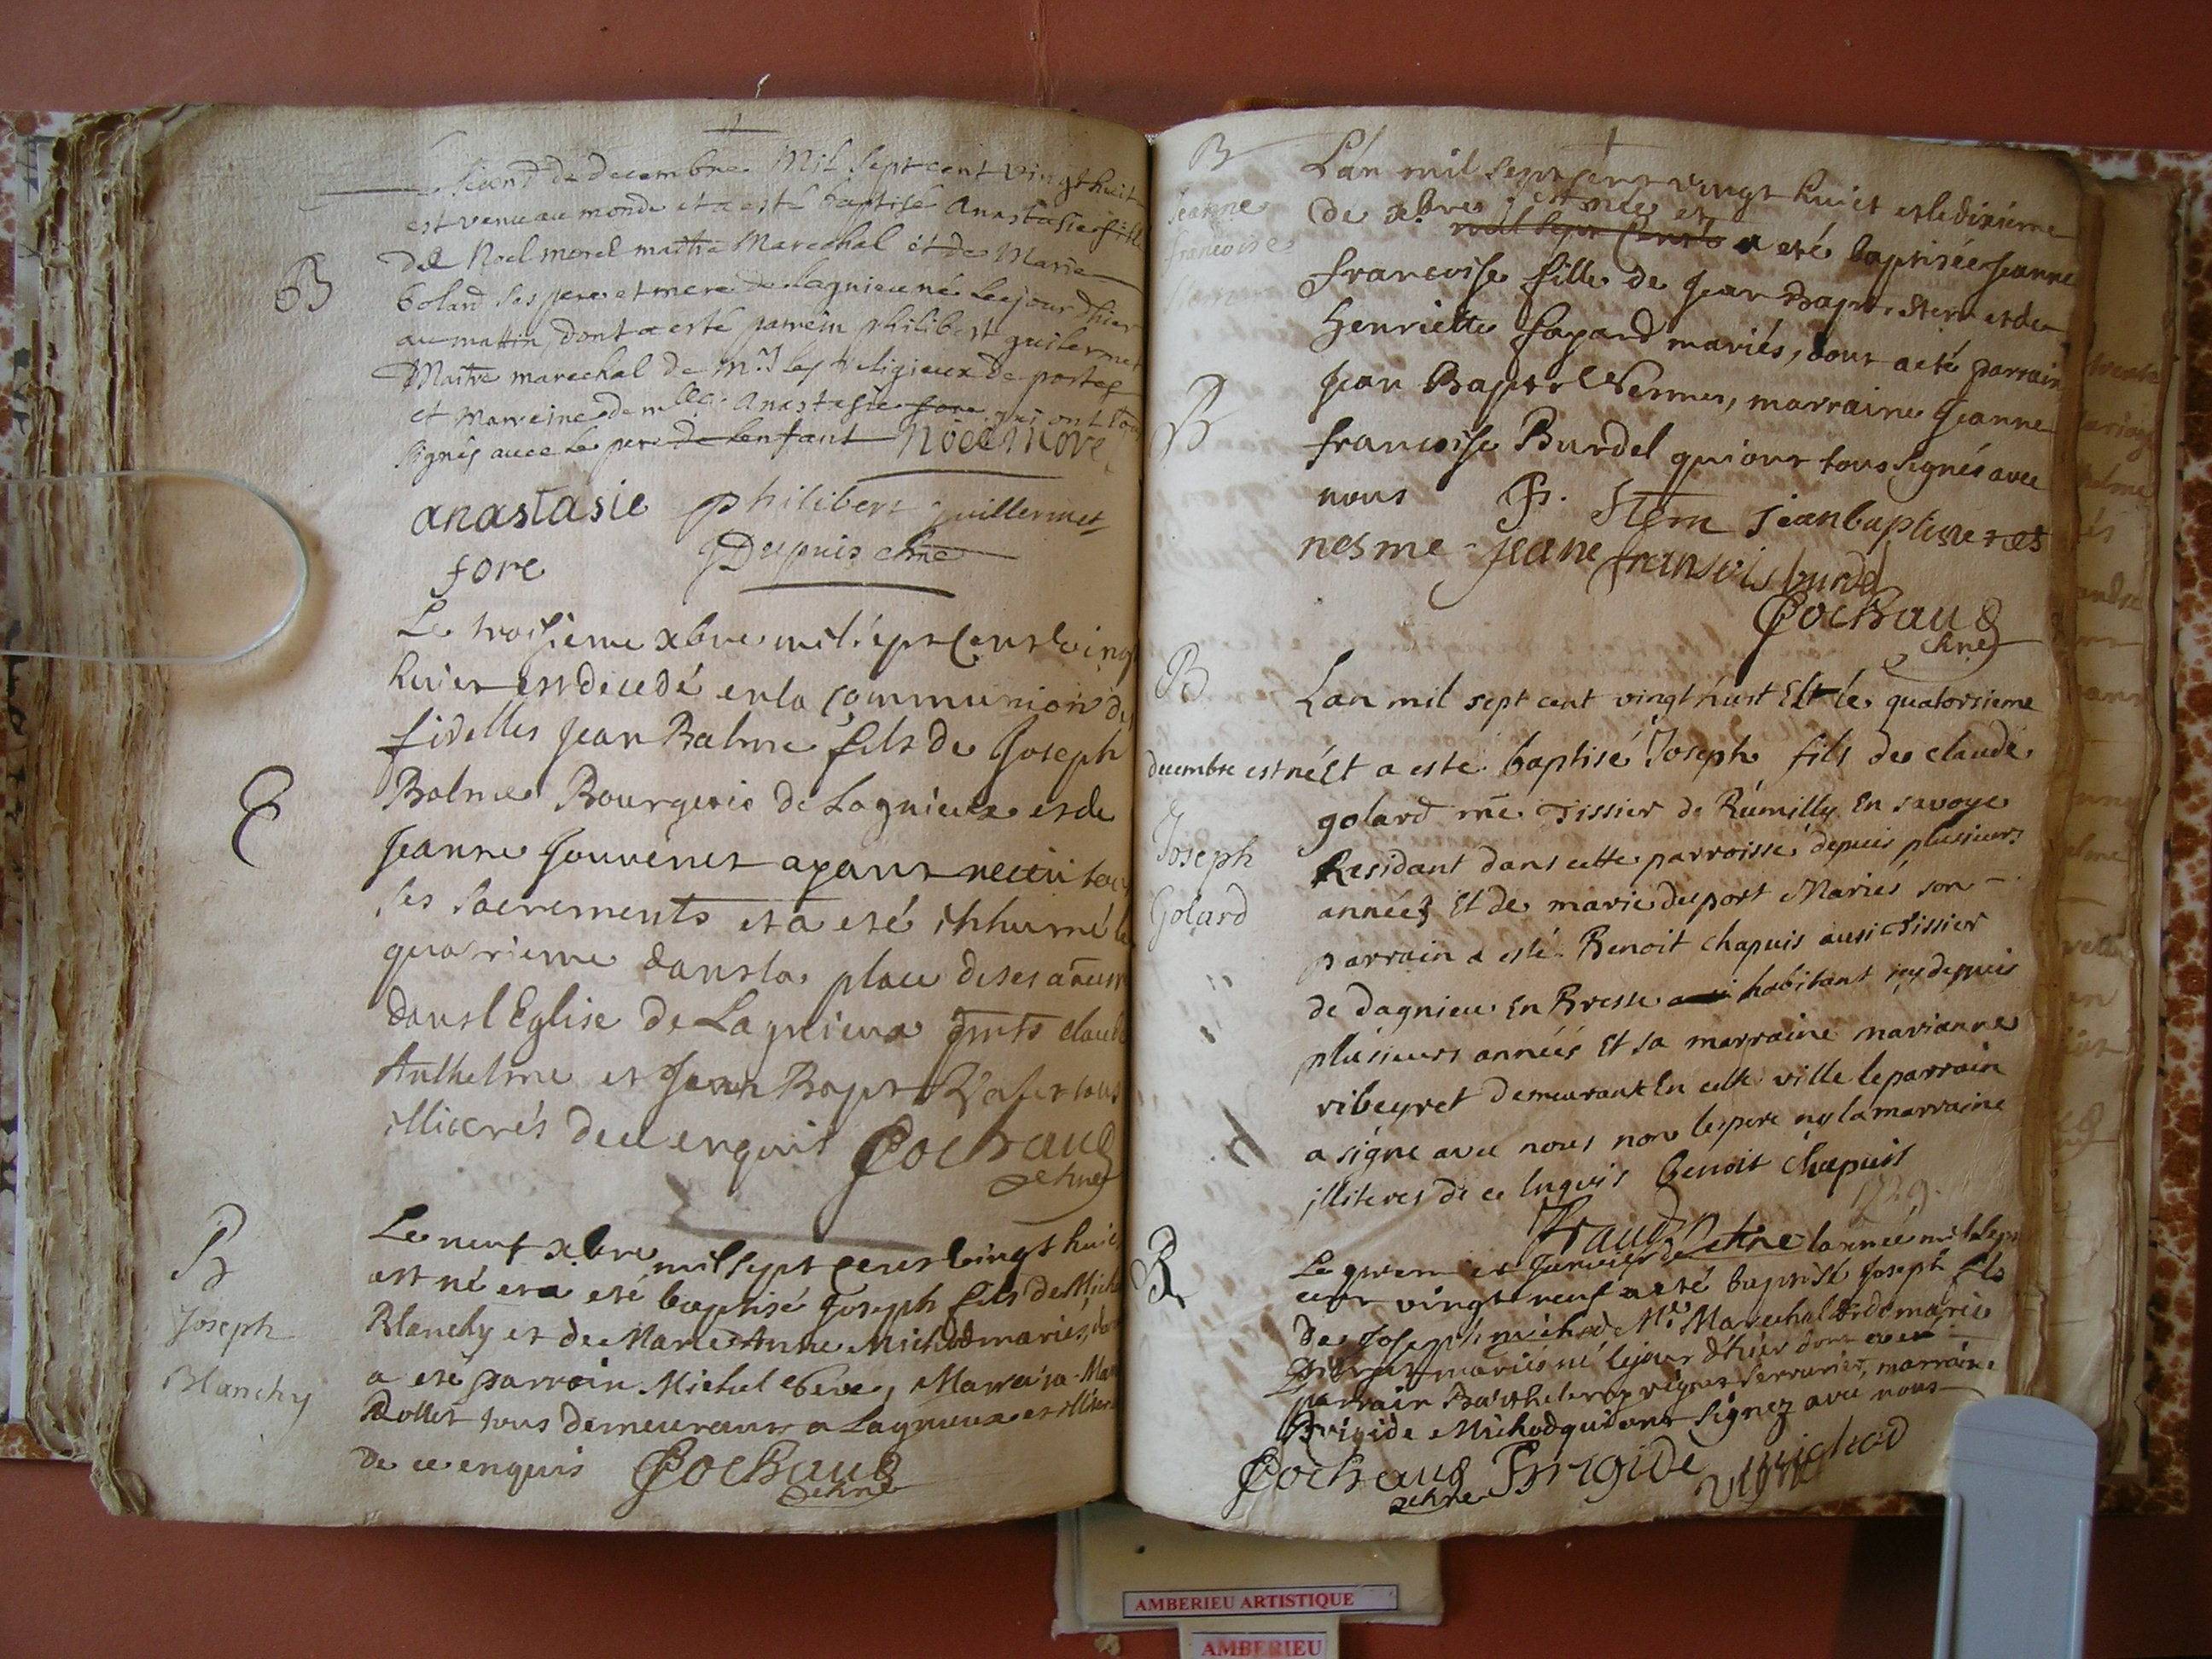 second de decembre Mil sept cent vingt huit
est venu au monde et a esté baptisé Anastasie fille
de Noel morel maitre Marechal et de Marie
bolard ses pere et mere de Lagnieu né le jour dhier
au mattin, dont a esté parrein philibert guilermet
Maitre marechal de mrs les Religieux de portes
et marreine demlle Anastasie fore qui ont tous
signés avec le pere de lenfant Noel More
B
anastasie philibert guillermet
fore Dupuis chne
Le troisieme xbre mil sept cent vingt
huict est decedé en la communion des
fidelles Jean Balme fils de Joseph
Balme Bourgeois de Lagnieux et de
Jeanne Jouvenet ayant receu tous
ses sacrements et a eté inhumé le
quatrieme dans la place de ses
dans l'Eglise de Lagnieux claude
Anthelme et Jean Bapt
illiterés de ce enquis Cochaud
chne
B
Joseph
Blanchy
Le neuf xbre mil sept cent vingt huict
est né et a eté baptisé Joseph fils de Michel
Blanchy et de Marie Anne Michod mariés, dont
a eté parrain Michel
Rollet tous demeurants a Lagnieux et
de ce enquis Cochaud
chne
B
Jeanne
francoise
L'an mil sept cent vingt huict et le dixieme
de xbre est née et
mil sept cent a eté baptisée Jeanne
francoise fille de Jean Bapt. Stern et de
Henriette fayard mariés, dont a eté parrain
Jean Bapt. Nesmes, marraine Jeanne
francoise Burdel qui ont tous signés avec
nous Stern Jean baptiste
nesme Jeane fransois burdel
Cochaud
chne
B
Lan mil sept cent vingt huit Et le quatorsieme
decembre est né Et a este baptisé Joseph fils de claude
golard me Tissier de Rumilly En savoye
Joseph
Golard
Residant dans cette parroisse depuis plusieurs
années Et de marie duport Mariés son
parrain a esté Benoit chapuis aussi Tissier
de dagnieu En Bresse habitant icy depuis
plusieurs années Et sa marraine marianne
ribeyret demeurant En cette ville le parrain
a signe avec nous non le pere ny la marraine
illiteres de ce Enquis Benoit chapuis
1729.
chne
Le premier Janvier de lannée mil sept
cent vingt neuf a eté baptisé Joseph fils
de Joseph michod Me Marechal et de marie
mariés né le jour d'hier dont a eté
parrain Barthelemy vigne serrurier, marraine
Brigide Michod qui ont signez avec nous
Cochaud Brigide michod
chne vigne
AMBERIEU ARTISTIQUE
AMBERIEU